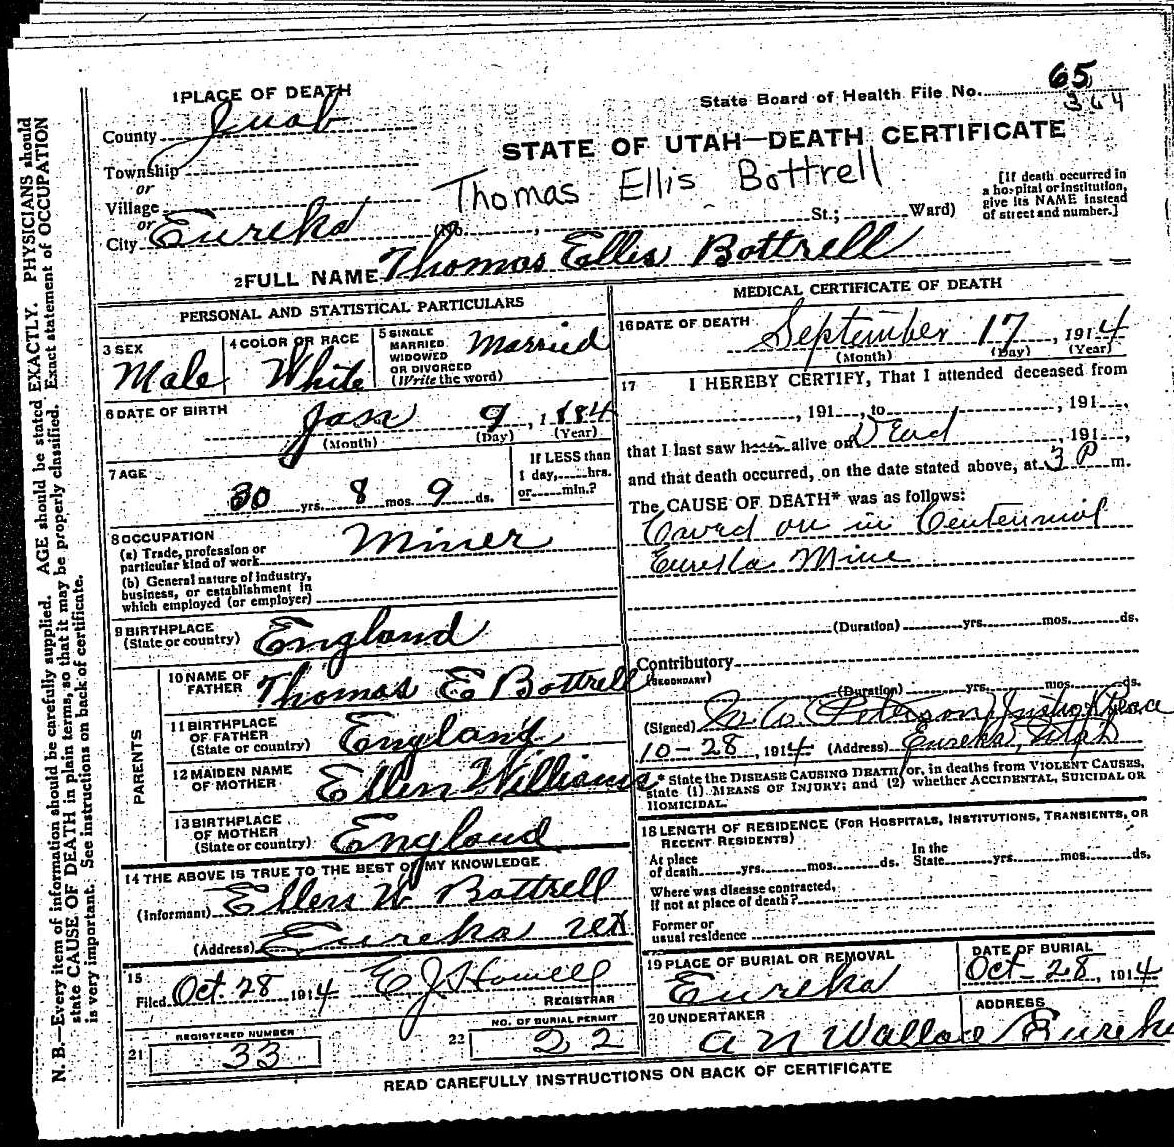 65
364
1 PLACE OF DEATH
State Board of Health File No.
County Juab
STATE OF UTAH—DEATH CERTIFICATE
Township
or
Village
Thomas Ellis Bottrell
[If death occurred in
a hospital or institution,
give its NAME instead
of street and number.]
or
City Eureka (No. , St.; Ward)
2 FULL NAME Thomas Ellis Bottrell
PERSONAL AND STATISTICAL PARTICULARS
3 SEX
Male
4 COLOR OR RACE
White
5 SINGLE
MARRIED
WIDOWED
OR DIVORCED
(Write the word)
Married
6 DATE OF BIRTH
Jan 9, 1884
(Month) (Day) (Year)
7 AGE
30 yrs. 8 mos. 9 ds.
If LESS than
1 day,....hrs.
or....min.?
8 OCCUPATION
(a) Trade, profession or
particular kind of work
Miner
(b) General nature of industry,
business, or establishment in
which employed (or employer)
9 BIRTHPLACE
(State or country) England
PARENTS
10 NAME OF
FATHER Thomas E Bottrell
11 BIRTHPLACE
OF FATHER
(State or country) England
12 MAIDEN NAME
OF MOTHER Ellen Williams
13 BIRTHPLACE
OF MOTHER
(State or country) England
14 THE ABOVE IS TRUE TO THE BEST OF MY KNOWLEDGE
(Informant) Ellen W Bottrell
(Address) Eureka
15
Filed Oct. 28 1914 E J Howell
REGISTRAR
REGISTERED NUMBER
21 33
NO. OF BURIAL PERMIT
22 22
MEDICAL CERTIFICATE OF DEATH
16 DATE OF DEATH
September 17, 1914
(Month) (Day) (Year)
17 I HEREBY CERTIFY, That I attended deceased from
, 191 , to , 191 ,
that I last saw h alive on Dead , 191 ,
and that death occurred, on the date stated above, at 3 P m.
The CAUSE OF DEATH* was as follows:
Caved on in Centennial
Eureka Mine
(Duration) yrs. mos. ds.
Contributory
(SECONDARY)
(Duration) yrs. mos. ds.
(Signed) Peterson Justice Peace
10-28, 1914 (Address) Eureka, Utah
* State the DISEASE CAUSING DEATH, or, in deaths from VIOLENT CAUSES,
state (1) MEANS OF INJURY; and (2) whether ACCIDENTAL, SUICIDAL OR
HOMICIDAL.
18 LENGTH OF RESIDENCE (FOR HOSPITALS, INSTITUTIONS, TRANSIENTS, OR
RECENT RESIDENTS)
At place
of death yrs. mos. ds.
In the
State yrs. mos. ds.
Where was disease contracted,
if not at place of death?
Former or
usual residence
19 PLACE OF BURIAL OR REMOVAL
Eureka
DATE OF BURIAL
Oct-28, 1914
20 UNDERTAKER
A N Wallace
ADDRESS
Eureka
READ CAREFULLY INSTRUCTIONS ON BACK OF CERTIFICATE
N. B.—Every item of information should be carefully supplied. AGE should be stated EXACTLY. PHYSICIANS should
state CAUSE OF DEATH in plain terms, so that it may be properly classified. Exact statement of OCCUPATION
is very important. See instructions on back of certificate.